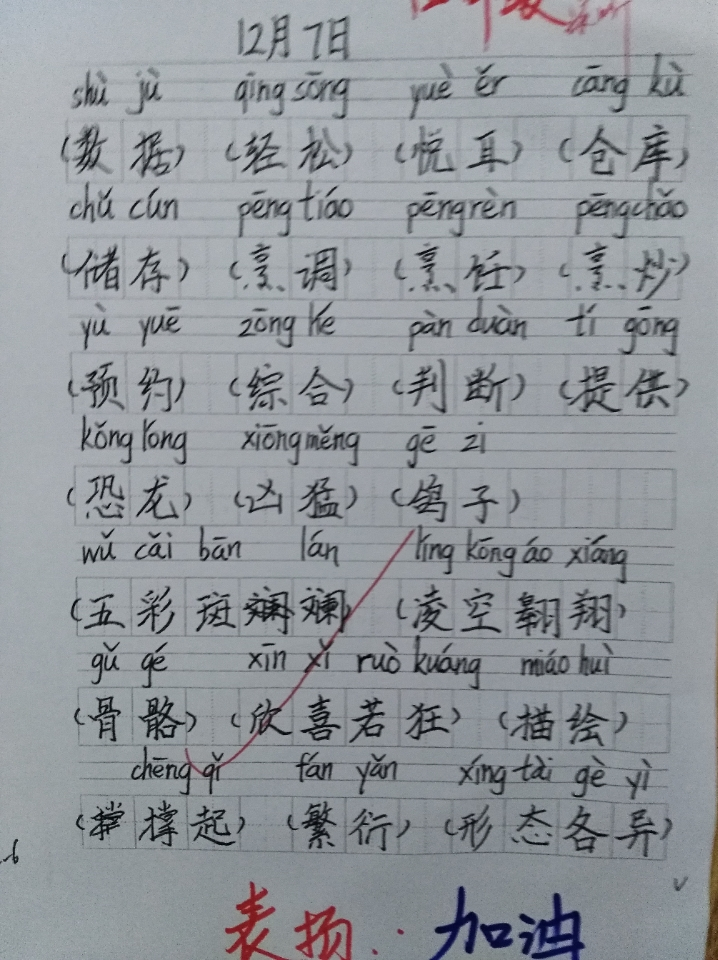 12月7日
shù jù qīng sōng yuè ěr cāng kù
(数据) (轻松) (悦耳) (仓库)
chǔ cún pēng tiáo pēng rèn pēng chǎo
(储存) (烹调) (烹饪) (烹炒)
yù yuē zōng hé pàn duàn tí gōng
(预约) (综合) (判断) (提供)
kǒng lóng xiōng měng gē zi
(恐龙) (凶猛) (鸽子)
wǔ cǎi bān lán líng kōng áo xiáng
(五彩斑斓) (凌空翱翔)
gǔ gé xīn xǐ ruò kuáng miáo huì
(骨骼) (欣喜若狂) (描绘)
chēng qǐ fán yǎn xíng tài gè yì
(撑起) (繁衍) (形态各异)
表扬: 加油